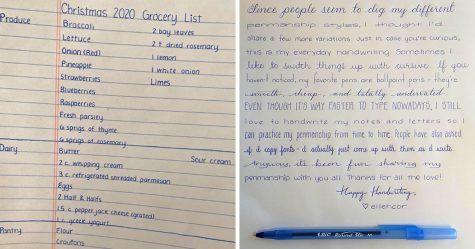 Christmas 2020 Grocery List
Produce
Broccoli
Lettuce
Onion (Red)
Pineapple
Strawberries
Blueberries
Raspberries
Fresh parsley
6 sprigs of thyme
6 sprigs of rosemary
2 bay leaves
2 t dried rosemary
1 lemon
1 white onion
Limes
Dairy
Butter
2 c. whipping cream
3 c. refrigerated shredded parmesan
Eggs
2 Half & Halfs
1.5 c. pepper jack cheese (grated)
1 c. greek yogurt
Sour cream
Pantry
Flour
Croutons
Since people seem to dig my different
penmanship styles, I thought I'd
share a few more variations. Just in case you're curious,
this is my everyday handwriting. Sometimes I
like to switch things up with cursive. If you
haven't noticed, my favorite pens are ballpoint pens - they're
smooth, cheap, and totally underrated.
EVEN THOUGH IT'S WAY FASTER TO TYPE NOWADAYS, I STILL
love to handwrite my notes and letters so I
can practice my penmanship from time to time. People have also asked
if I copy fonts - I actually just come up with them as I write.
Anyway, it's been fun sharing my
penmanship with you all. Thanks for all the love!
Happy Handwriting,
♡ ellencor
BIC